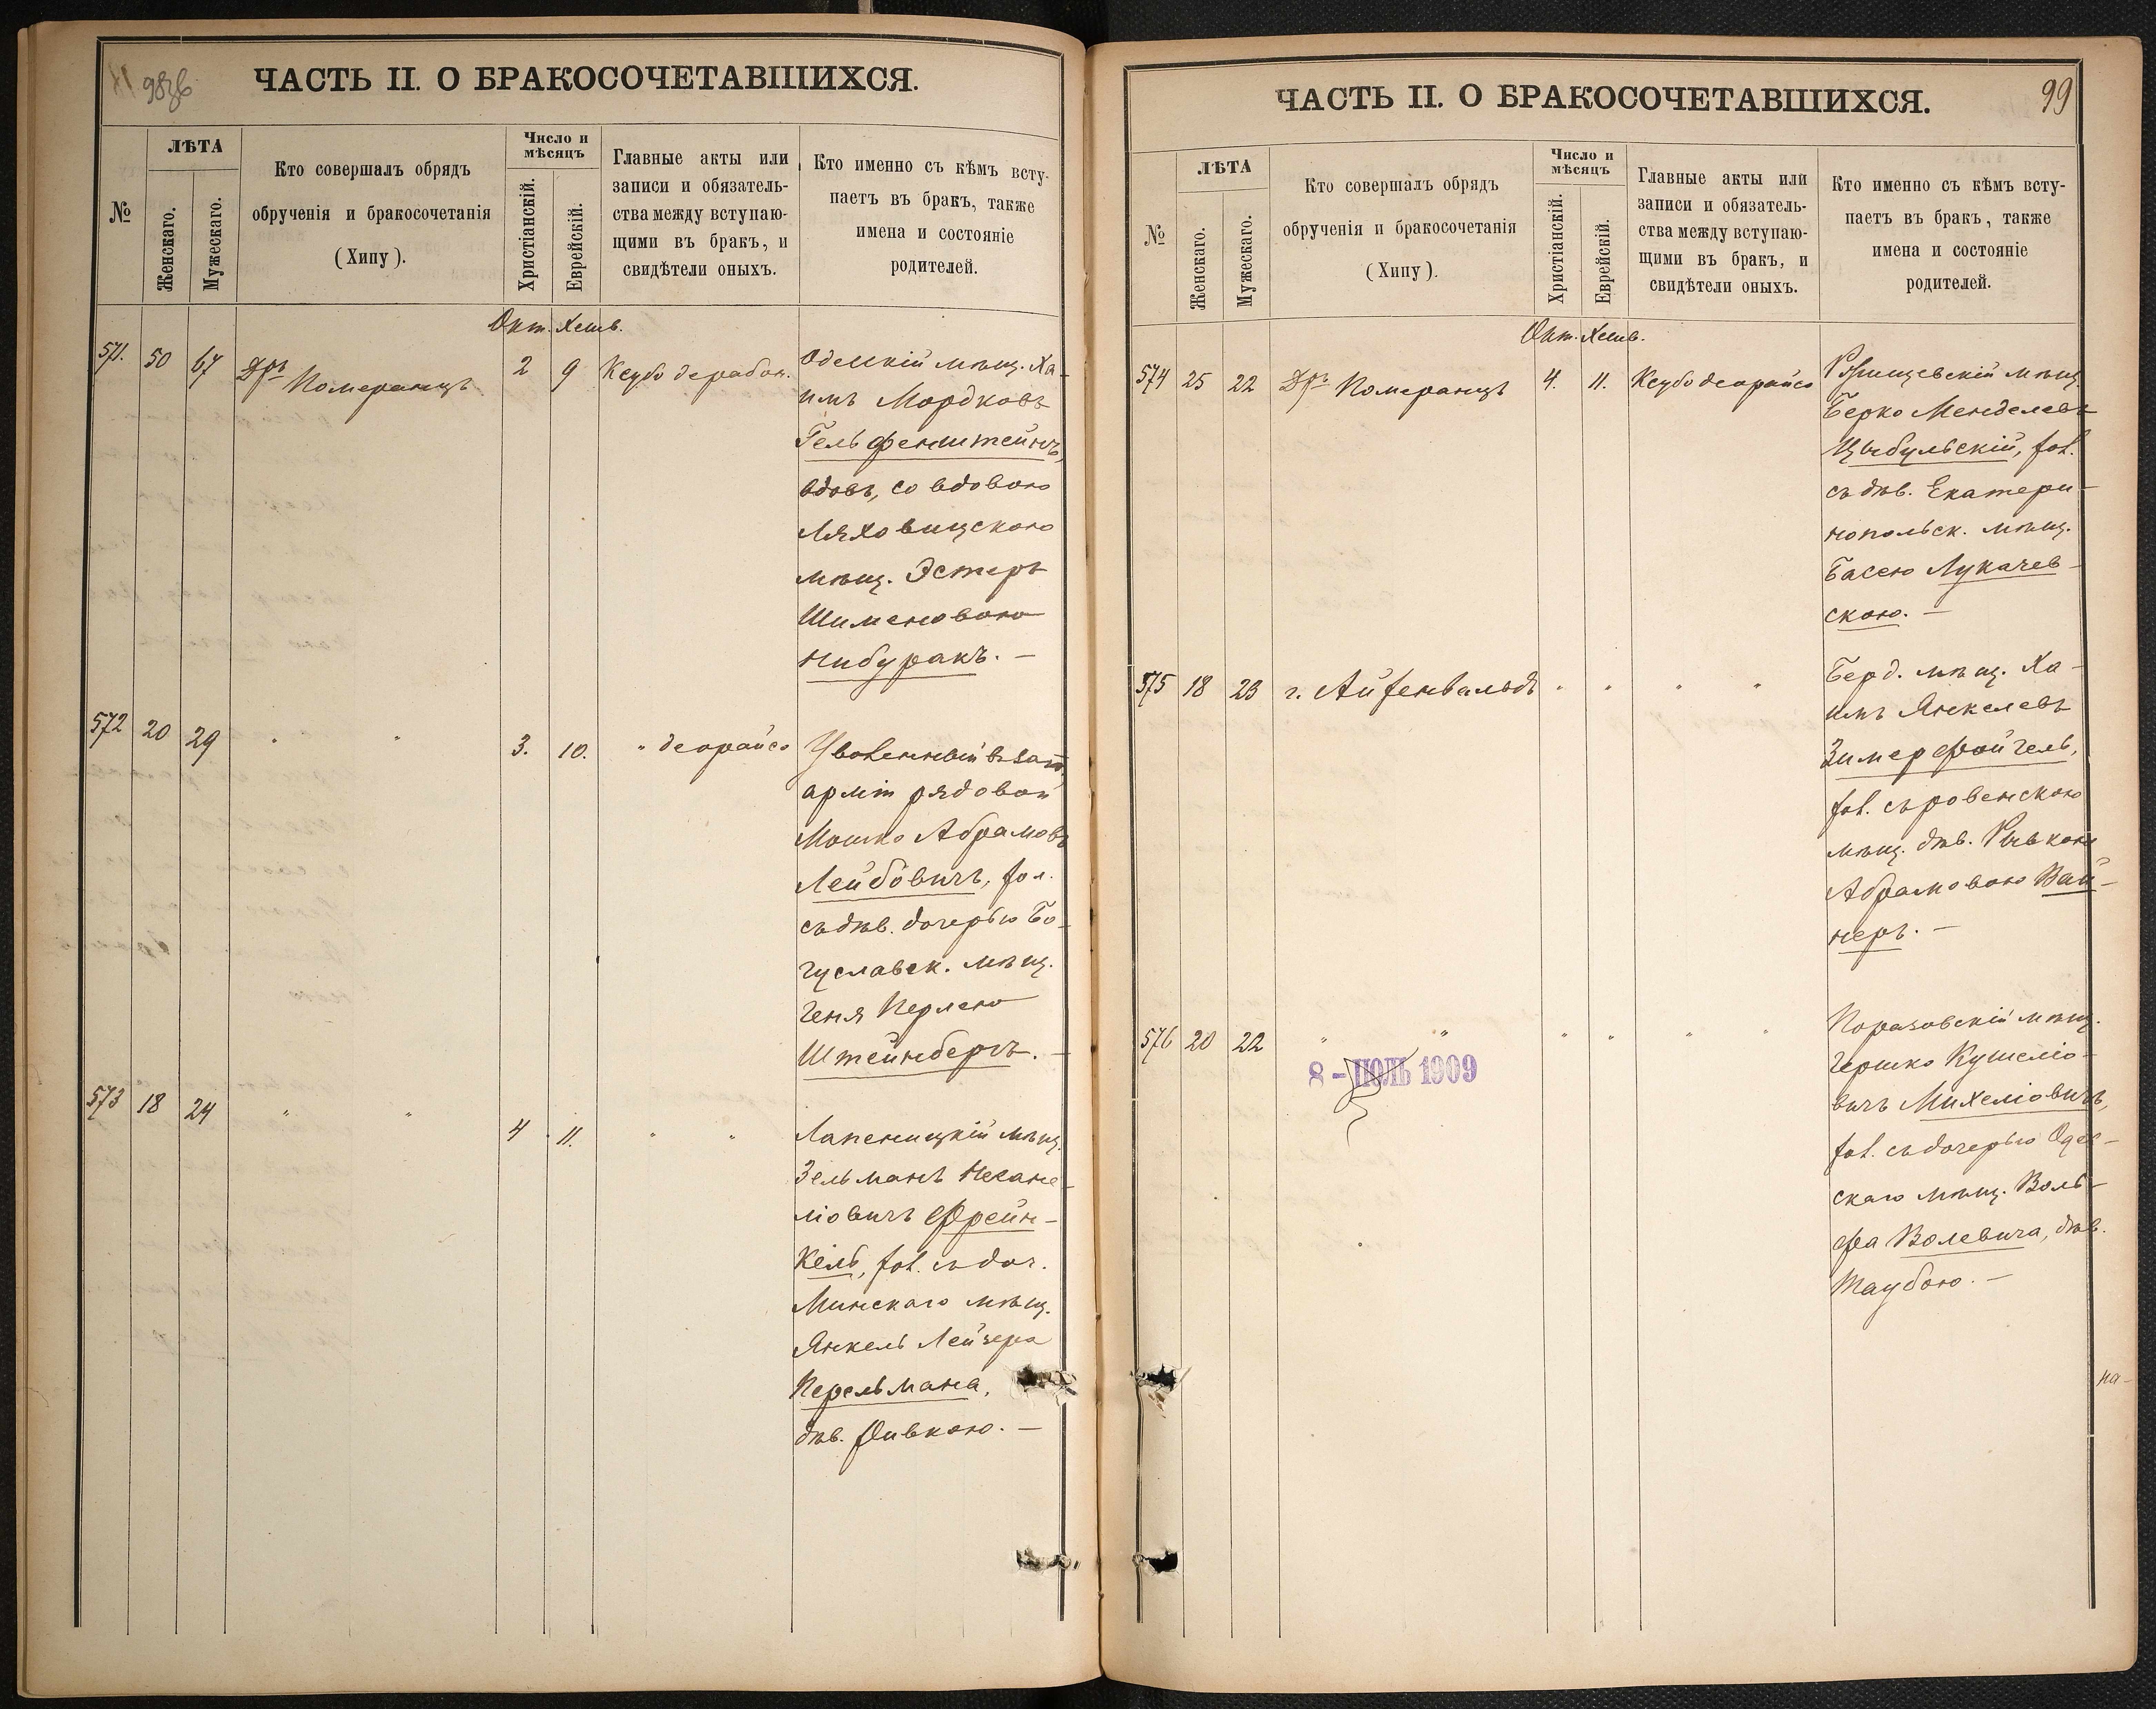 98об
ЧАСТЬ II. О БРАКОСОЧЕТАВШИХСЯ.
№
ЛѢТА
Женскаго.
Мужескаго.
Кто совершалъ обрядъ
обрученія и бракосочетанія
(Хипу).
Число и
мѣсяцъ
Христіанскій.
Еврейскій.
Главные акты или
записи и обязатель-
ства между вступаю-
щими въ бракъ, и
свидѣтели оныхъ.
Кто именно съ кѣмъ всту-
паетъ въ бракъ, также
имена и состояніе
родителей.
Окт. Хешв.
571. 50 67 Дръ Померанцъ 2 9 Ксубо дерабон.
Одесскій мѣщ. Ха-
имъ Мордковъ
Гельфенштейнъ,
вдовъ, со вдовою
Ляховицскою
мѣщ. Эстеръ
Шименовою
Нибуракъ. —
572 20 29 " " 3. 10. " деорайсо
Уволенный въ зап.
арміи рядовой
Мошко Абрамовъ
Лейбовичъ, хол.
съ дѣв. дочерью Бо-
гуславск. мѣщ.
Геня Перлею
Штейнбергъ. —
573 18 24 " " 4 11. " "
Лапеницкій мѣщ.
Зельманъ Нехаме-
ліовичъ Френ-
кель, хол. съ доч.
Минскаго мѣщ.
Янкель Лейзера
Перельмана,
дѣв. Ривкою. —
99
ЧАСТЬ II. О БРАКОСОЧЕТАВШИХСЯ.
№
ЛѢТА
Женскаго.
Мужескаго.
Кто совершалъ обрядъ
обрученія и бракосочетанія
(Хипу).
Число и
мѣсяцъ
Христіанскій.
Еврейскій.
Главные акты или
записи и обязатель-
ства между вступаю-
щими въ бракъ, и
свидѣтели оныхъ.
Кто именно съ кѣмъ всту-
паетъ въ бракъ, также
имена и состояніе
родителей.
Окт. Хешв.
574 25 22 Дръ Померанцъ 4. 11. Ксубо деорайсо
мѣщ.
Берко Менделевъ
Цыбульскій, хол.
съ дѣв. Екатери-
нопольск. мѣщ.
Басею Лукачев-
скою. —
575 18 23 г. Айхенвальдъ " " " "
Берд. мѣщ. Ха-
имъ Янкелевъ
Зимерфойгель,
хол. съ ровенскою
мѣщ. дѣв. Рывкою
Абрамовою Вай-
неръ. —
576 20 22 " " " " " "
Поразовскій мѣщ.
Гершко Кушеліо-
вичъ Михеліовичъ,
хол. съ дочерью Одес-
скаго мѣщ. Воль-
фа Волевича, дѣв.
Таубою. —
8 - ІЮЛЬ 1909
на-